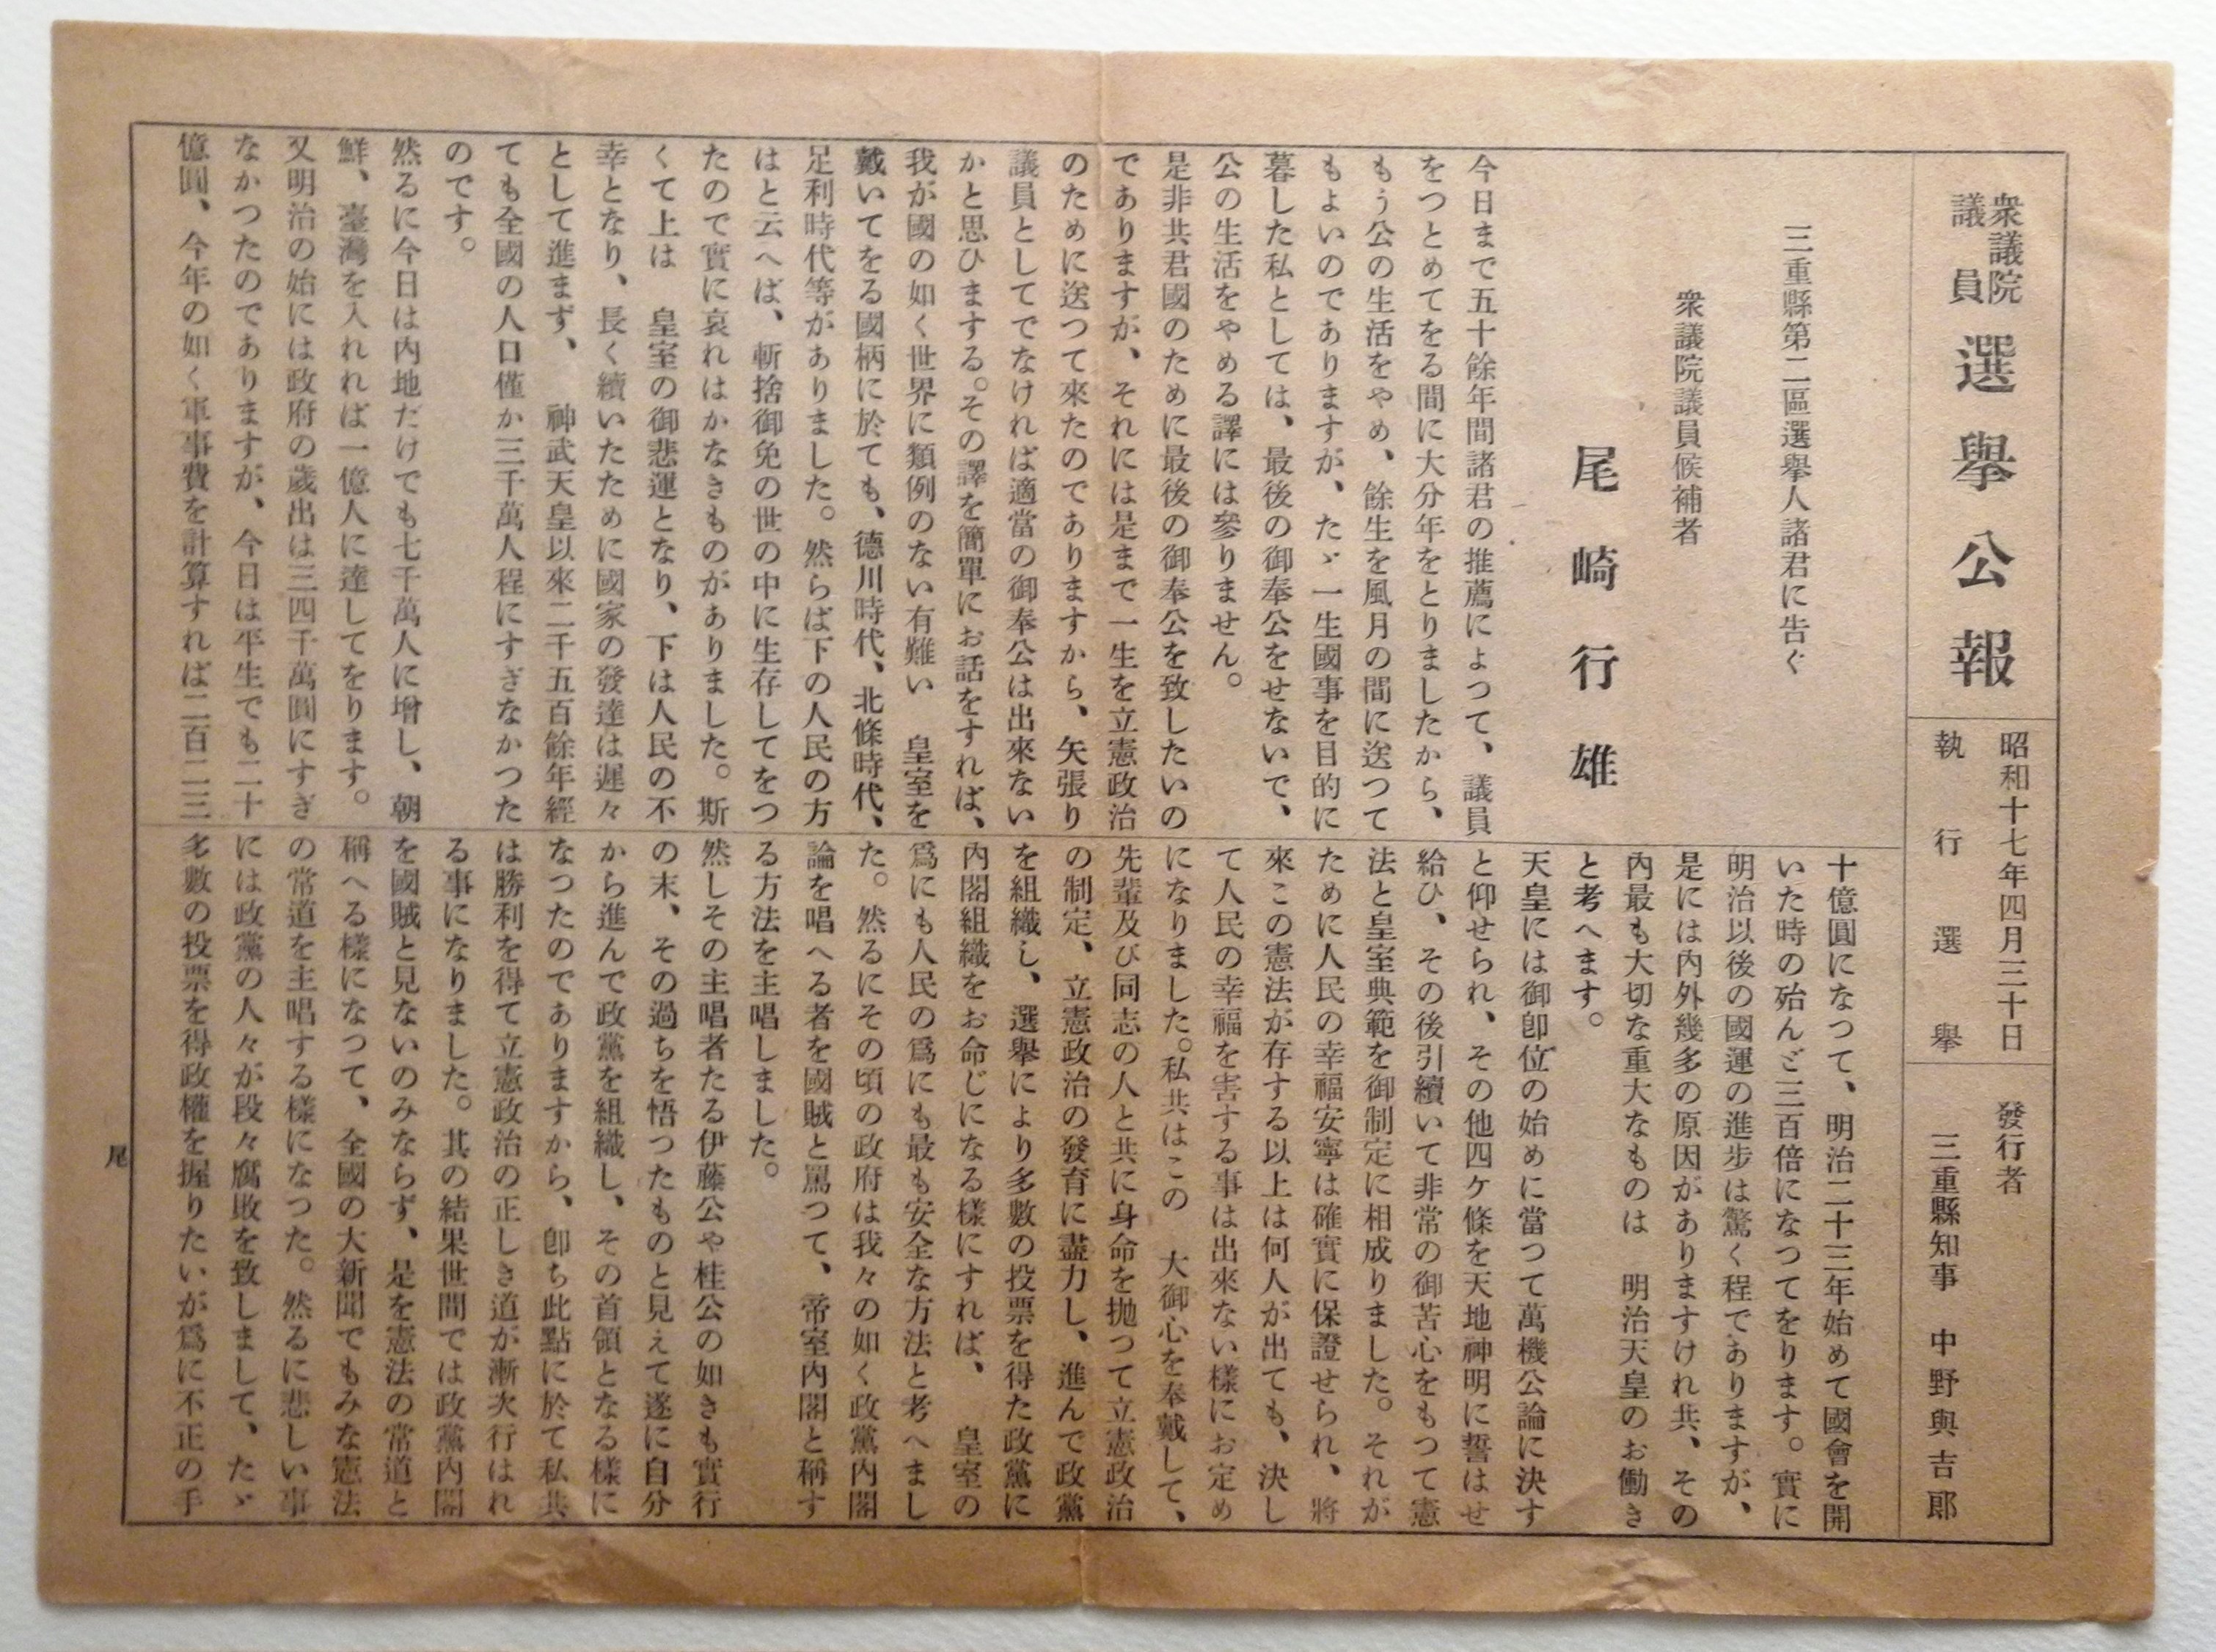 衆議院
議員
選擧公報
昭和十七年四月三十日
執行選擧
發行者
三重縣知事　中野與吉郎
三重縣第二區選擧人諸君に告ぐ
衆議院議員候補者
尾崎行雄
今日まで五十餘年間諸君の推薦によつて、議員
をつとめてをる間に大分年をとりましたから、
もう公の生活をやめ、餘生を風月の間に送つて
もよいのでありますが、たゞ一生國事を目的に
暮した私としては、最後の御奉公をせないで、
公の生活をやめる譯には參りません。
是非共君國のために最後の御奉公を致したいの
でありますが、それには是まで一生を立憲政治
のために送つて來たのでありますから、矢張り
議員としてでなければ適當の御奉公は出來ない
かと思ひまする。その譯を簡單にお話をすれば、
我が國の如く世界に類例のない有難い　皇室を
戴いてをる國柄に於ても、德川時代、北條時代、
足利時代等がありました。然らば下の人民の方
はと云へば、斬捨御免の世の中に生存してをつ
たので實に哀れはかなきものがありました。斯
くて上は　皇室の御悲運となり、下は人民の不
幸となり、長く續いたために國家の發達は遲々
として進まず、　神武天皇以來二千五百餘年經
ても全國の人口僅か三千萬人程にすぎなかつた
のです。
然るに今日は内地だけでも七千萬人に增し、朝
鮮、臺灣を入れれば一億人に達してをります。
又明治の始には政府の歲出は三四千萬圓にすぎ
なかつたのでありますが、今日は平生でも二十
億圓、今年の如く軍事費を計算すれば二百二三
十億圓になつて、明治二十三年始めて國會を開
いた時の殆んど三百倍になつてをります。實に
明治以後の國運の進步は驚く程でありますが、
是には内外幾多の原因がありますけれ共、その
内最も大切な重大なものは　明治天皇のお働き
と考へます。
天皇には御卽位の始めに當つて萬機公論に決す
と仰せられ、その他四ケ條を天地神明に誓はせ
給ひ、その後引續いて非常の御苦心をもつて憲
法と皇室典範を御制定に相成りました。それが
ために人民の幸福安寧は確實に保證せられ、將
來この憲法が存する以上は何人が出ても、決し
て人民の幸福を害する事は出來ない樣にお定め
になりました。私共はこの　大御心を奉戴して、
先輩及び同志の人と共に身命を抛つて立憲政治
の制定、立憲政治の發育に盡力し、進んで政黨
を組織し、選擧により多數の投票を得た政黨に
内閣組織をお命じになる樣にすれば、　皇室の
爲にも人民の爲にも最も安全な方法と考へまし
た。然るにその頃の政府は我々の如く政黨内閣
論を唱へる者を國賊と罵つて、帝室内閣と稱す
る方法を主唱しました。
然しその主唱者たる伊藤公や桂公の如きも實行
の末、その過ちを悟つたものと見えて遂に自分
から進んで政黨を組織し、その首領となる樣に
なつたのでありますから、卽ち此點に於て私共
は勝利を得て立憲政治の正しき道が漸次行はれ
る事になりました。其の結果世間では政黨内閣
を國賊と見ないのみならず、是を憲法の常道と
稱へる樣になつて、全國の大新聞でもみな憲法
の常道を主唱する樣になつた。然るに悲しい事
には政黨の人々が段々腐敗を致しまして、たゞ
多數の投票を得政權を握りたいが爲に不正の手
尾